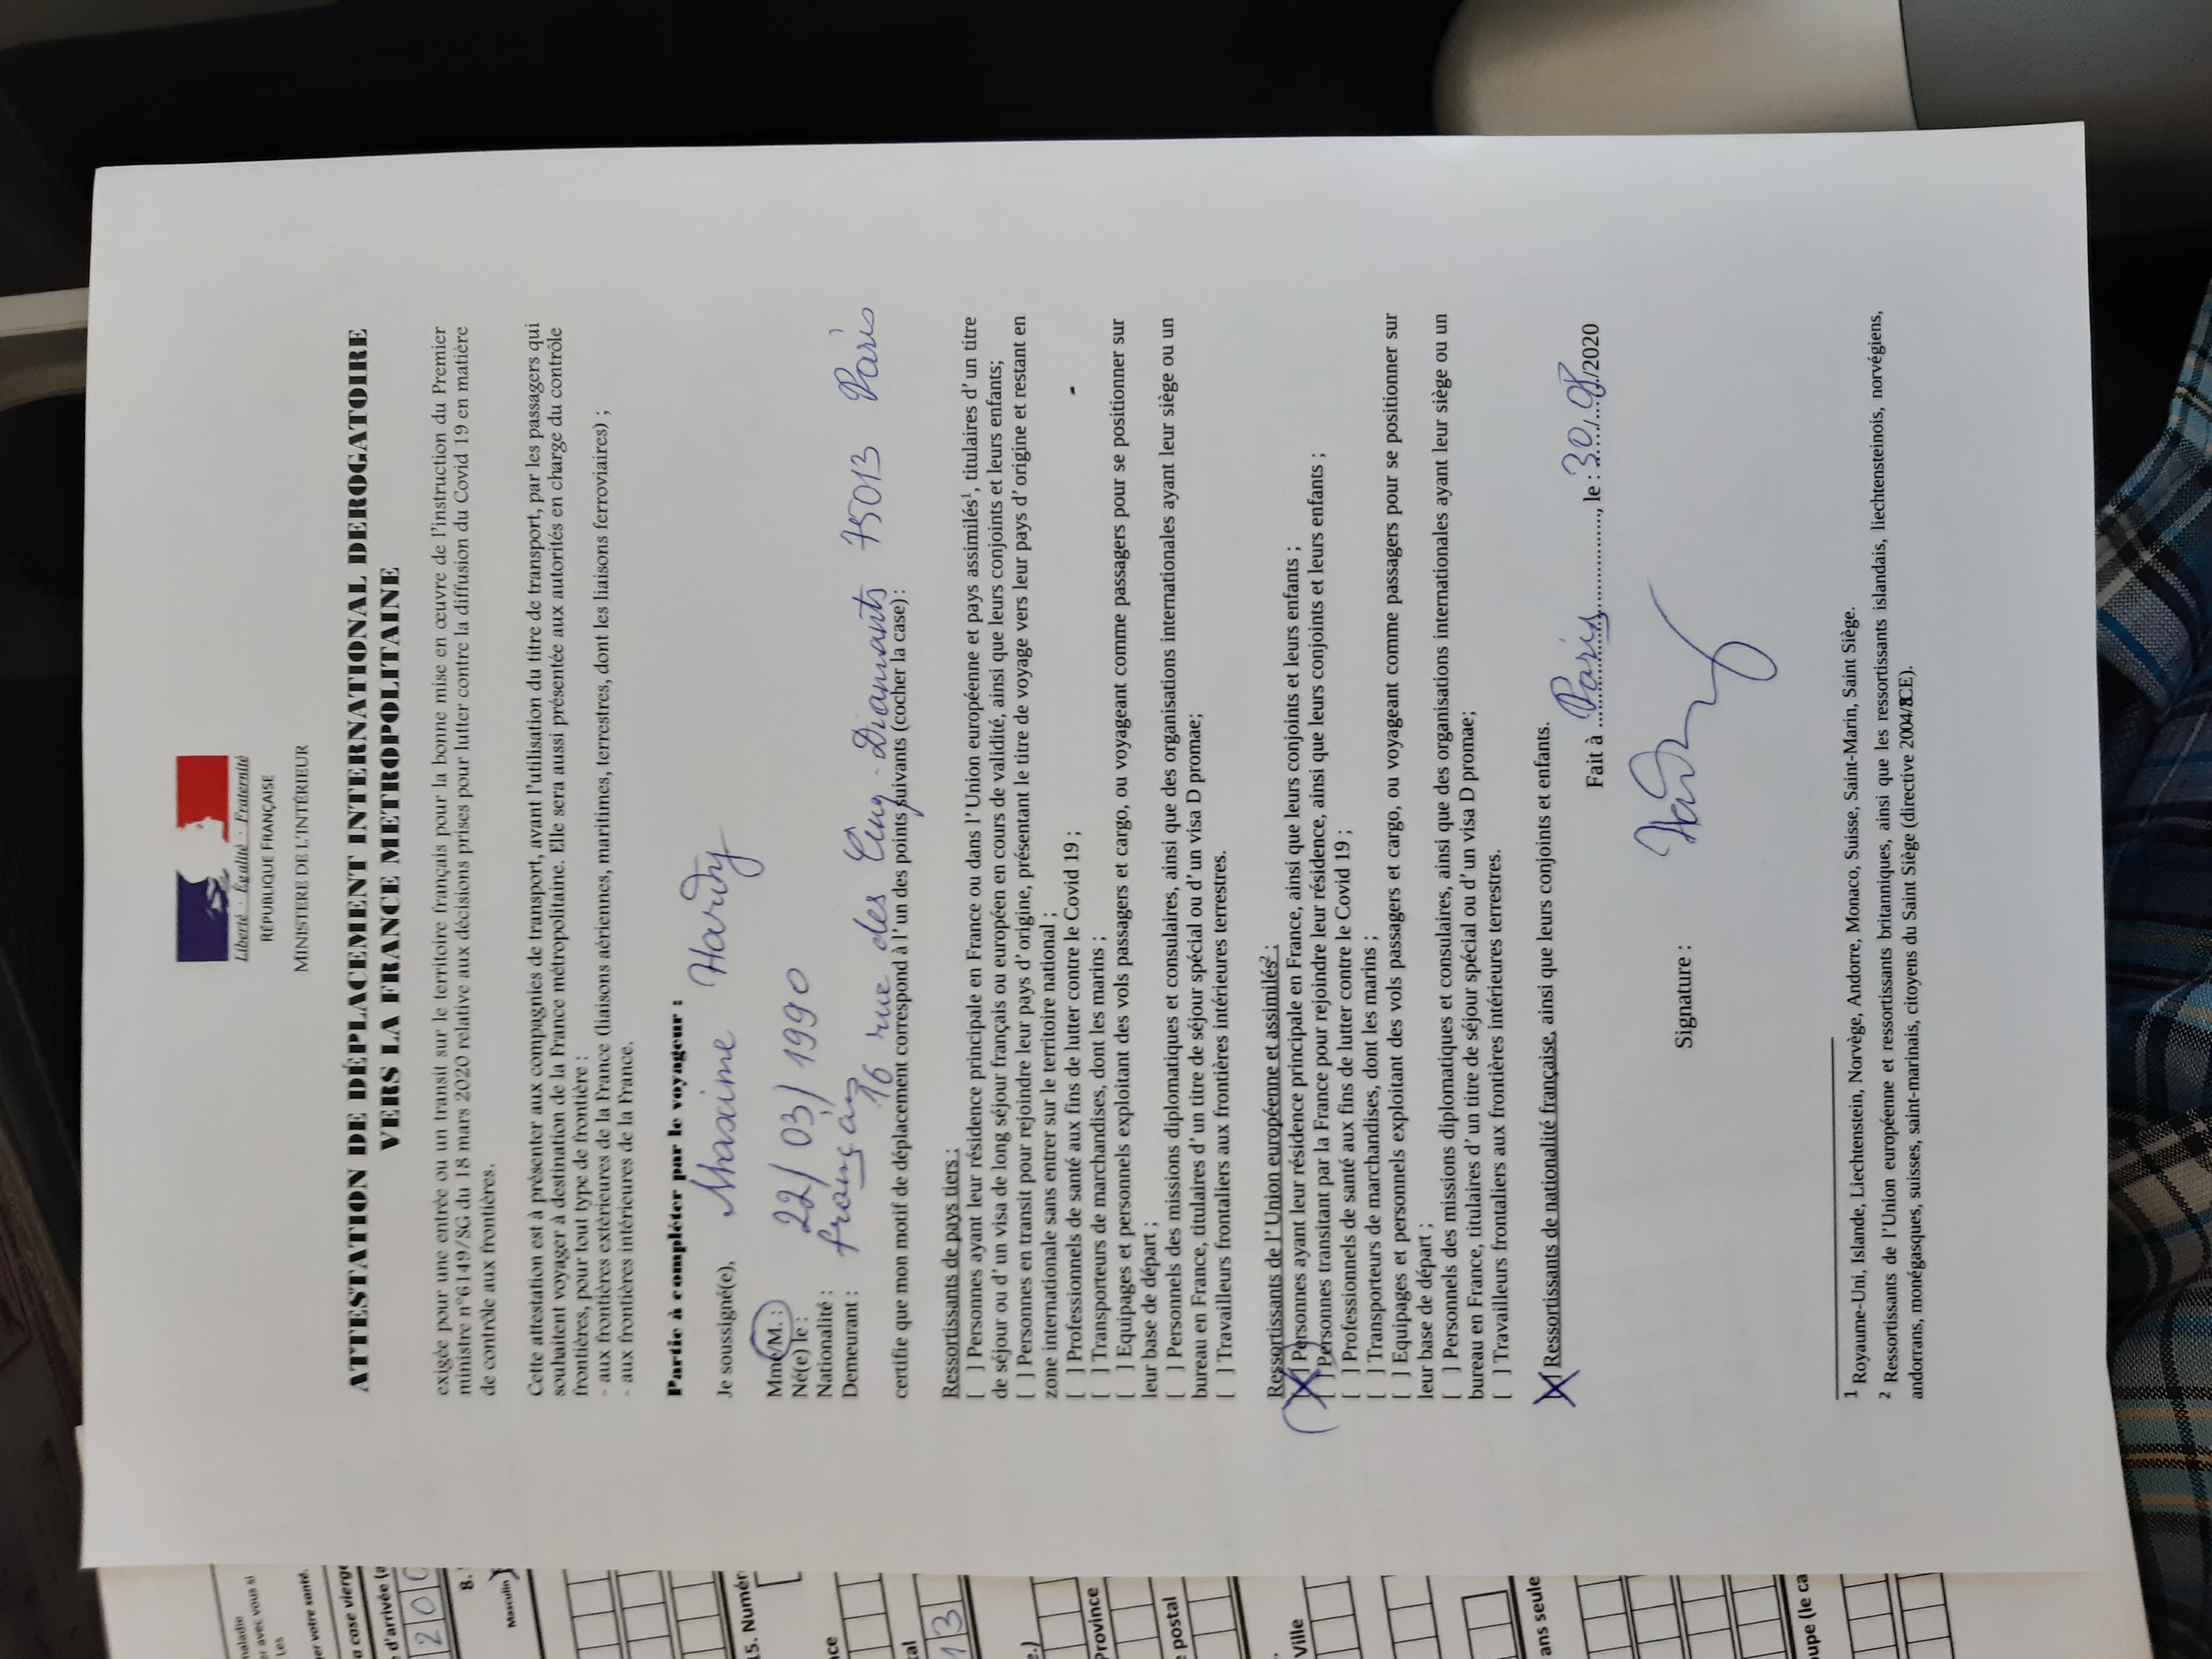 Liberté · Égalité · Fraternité
RÉPUBLIQUE FRANÇAISE
MINISTERE DE L'INTÉRIEUR
ATTESTATION DE DÉPLACEMENT INTERNATIONAL DEROGATOIRE
VERS LA FRANCE METROPOLITAINE
exigée pour une entrée ou un transit sur le territoire français pour la bonne mise en œuvre de l'instruction du Premier
ministre n°6149/SG du 18 mars 2020 relative aux décisions prises pour lutter contre la diffusion du Covid 19 en matière
de contrôle aux frontières.
Cette attestation est à présenter aux compagnies de transport, avant l'utilisation du titre de transport, par les passagers qui
souhaitent voyager à destination de la France métropolitaine. Elle sera aussi présentée aux autorités en charge du contrôle
frontières, pour tout type de frontière :
- aux frontières extérieures de la France (liaisons aériennes, maritimes, terrestres, dont les liaisons ferroviaires) ;
- aux frontières intérieures de la France.
Partie à compléter par le voyageur :
Je soussigné(e), Maxime Hardy
Mme/M. :
Né(e) le : 22/03/1990
Nationalité : français
Demeurant : 16 rue des Cinq-Diamants 75013 Paris
certifie que mon motif de déplacement correspond à l'un des points suivants (cocher la case) :
Ressortissants de pays tiers :
[ ] Personnes ayant leur résidence principale en France ou dans l'Union européenne et pays assimilés1, titulaires d'un titre
de séjour ou d'un visa de long séjour français ou européen en cours de validité, ainsi que leurs conjoints et leurs enfants;
[ ] Personnes en transit pour rejoindre leur pays d'origine, présentant le titre de voyage vers leur pays d'origine et restant en
zone internationale sans entrer sur le territoire national ;
[ ] Professionnels de santé aux fins de lutter contre le Covid 19 ;
[ ] Transporteurs de marchandises, dont les marins ;
[ ] Equipages et personnels exploitant des vols passagers et cargo, ou voyageant comme passagers pour se positionner sur
leur base de départ ;
[ ] Personnels des missions diplomatiques et consulaires, ainsi que des organisations internationales ayant leur siège ou un
bureau en France, titulaires d'un titre de séjour spécial ou d'un visa D promae;
[ ] Travailleurs frontaliers aux frontières intérieures terrestres.
Ressortissants de l'Union européenne et assimilés2 :
[X] Personnes ayant leur résidence principale en France, ainsi que leurs conjoints et leurs enfants ;
[ ] Personnes transitant par la France pour rejoindre leur résidence, ainsi que leurs conjoints et leurs enfants ;
[ ] Professionnels de santé aux fins de lutter contre le Covid 19 ;
[ ] Transporteurs de marchandises, dont les marins ;
[ ] Equipages et personnels exploitant des vols passagers et cargo, ou voyageant comme passagers pour se positionner sur
leur base de départ ;
[ ] Personnels des missions diplomatiques et consulaires, ainsi que des organisations internationales ayant leur siège ou un
bureau en France, titulaires d'un titre de séjour spécial ou d'un visa D promae;
[ ] Travailleurs frontaliers aux frontières intérieures terrestres.
[X] Ressortissants de nationalité française, ainsi que leurs conjoints et enfants.
Fait à Paris, le : 30/08/2020
Signature : Hardy
1 Royaume-Uni, Islande, Liechtenstein, Norvège, Andorre, Monaco, Suisse, Saint-Marin, Saint Siège.
2 Ressortissants de l'Union européenne et ressortissants britanniques, ainsi que les ressortissants islandais, liechtensteinois, norvégiens,
andorrans, monégasques, suisses, saint-marinais, citoyens du Saint Siège (directive 2004/ CE).
maladie
er avec vous si
Les
ger votre santé.
a case vierge
d'arrivée (
200
8.
Masculin
15. Numér
nce
tal
13
e.)
Province
postal
Ville
ans seule
oupe (le ca